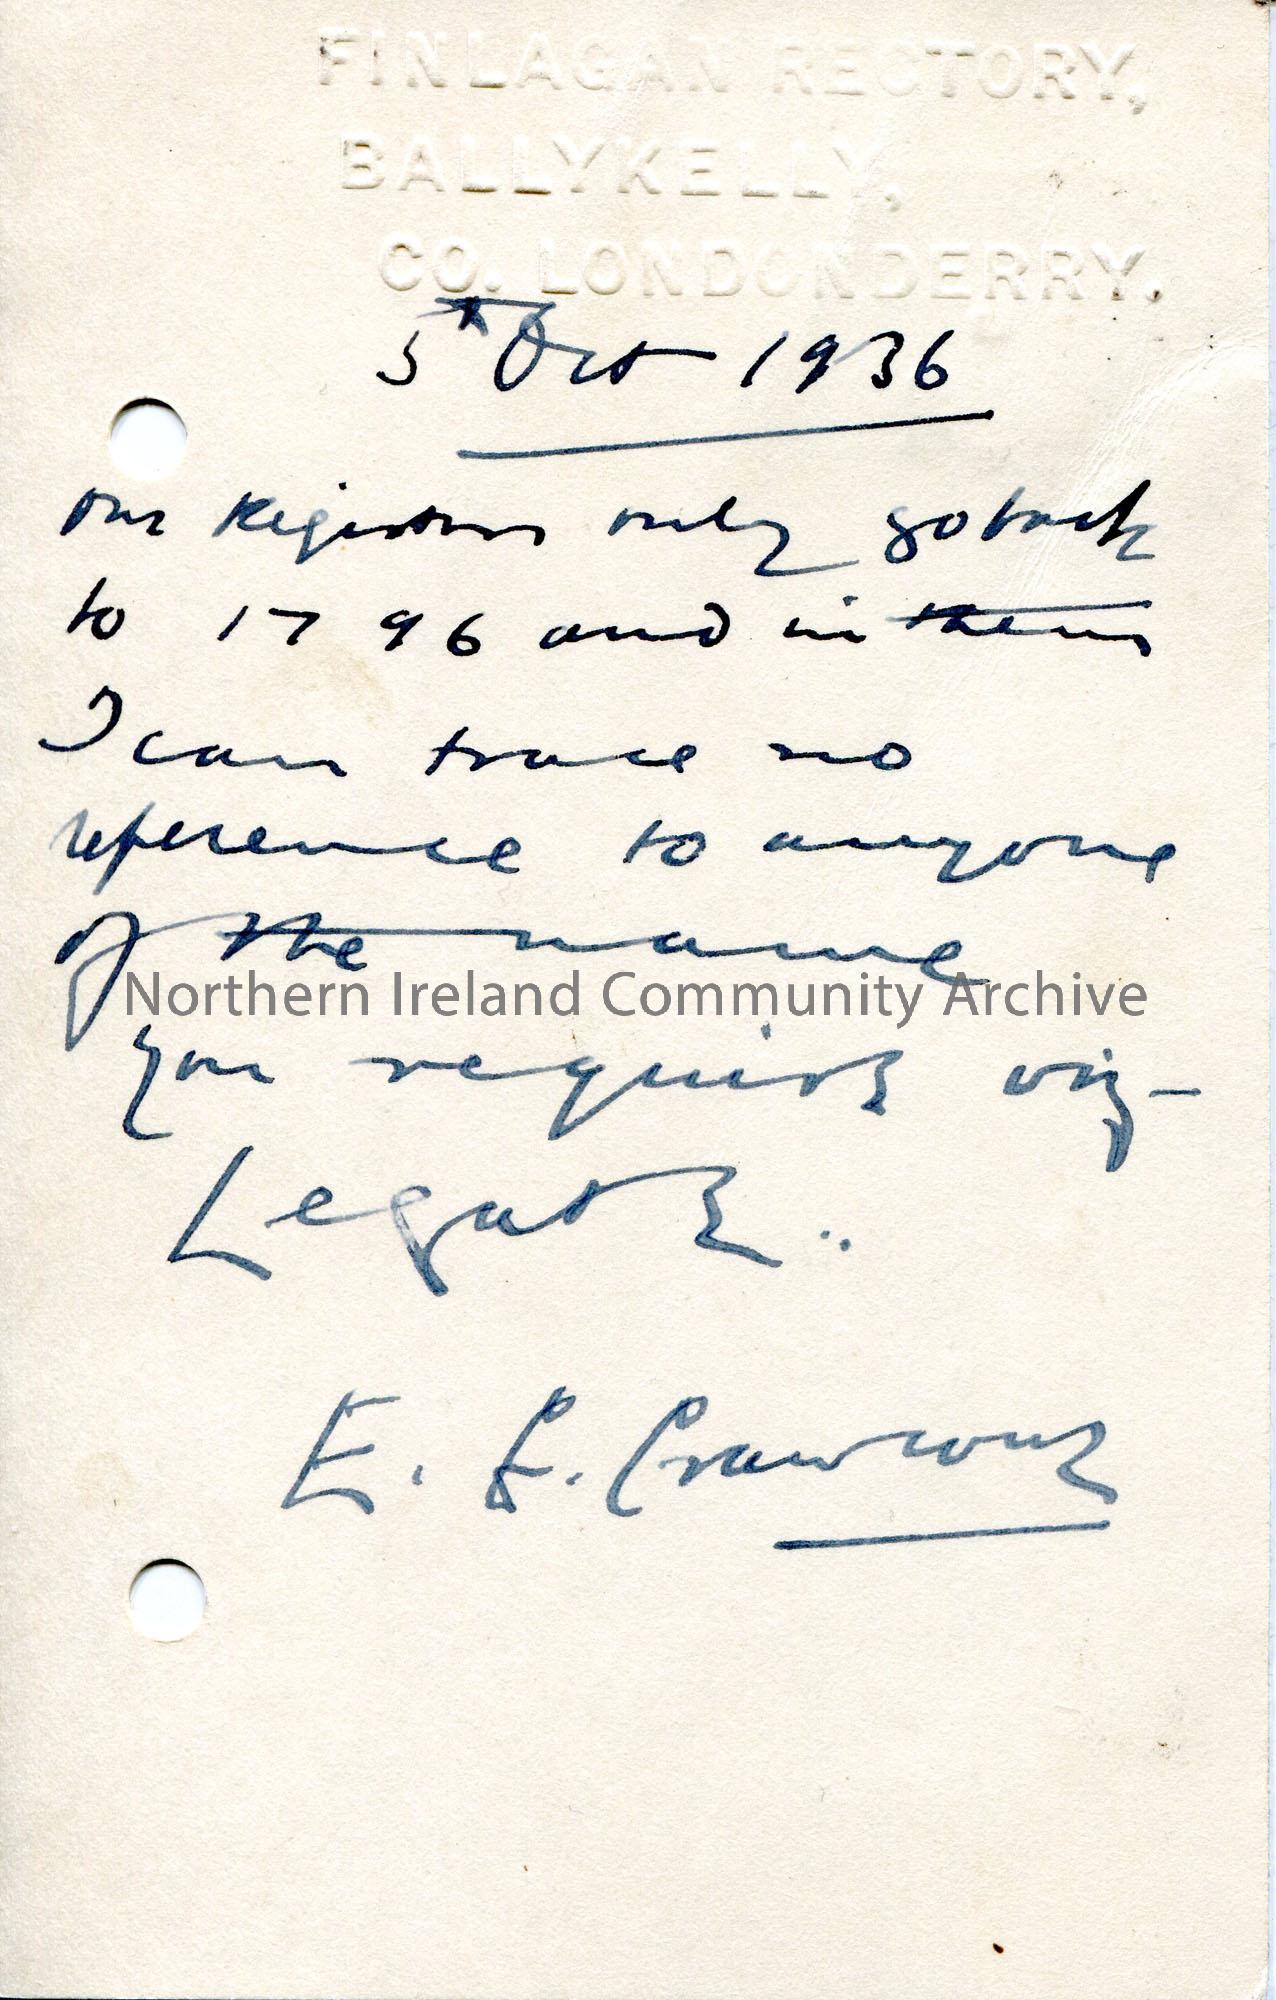 FINLAGAN RECTORY,
BALLYKELLY,
CO. LONDONDERRY.
5th Oct 1936
Our Registers only go back
to 1796 and in them
I can trace no
reference to anyone
of the name
Northern Ireland Community Archive
you require viz-
Legate..
E. L. Crawford